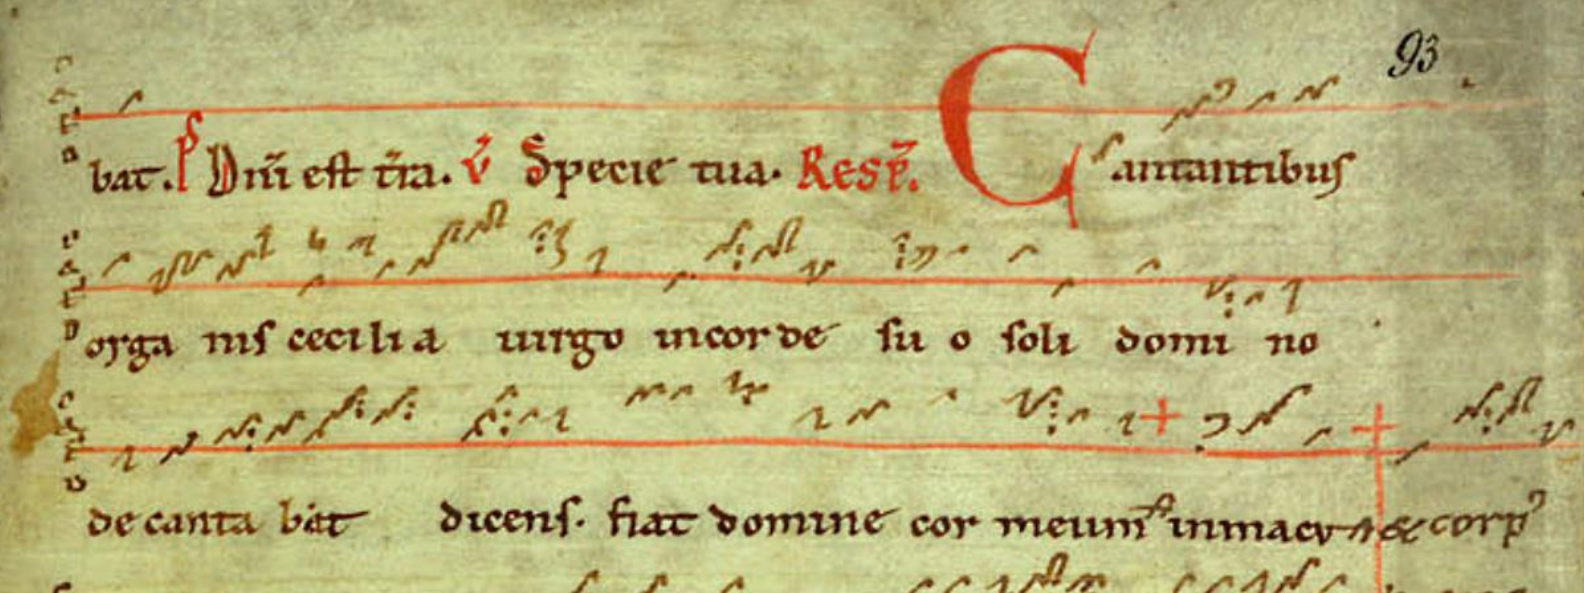 93
bat. P Dñi est tr̄a. v̄ Specie tua. Resp̄. Cantantibus
orga nis cecilia uirgo incorde su o soli domi no
decanta bat dicens. fiat domine cor meum inmacu & corpꝰ